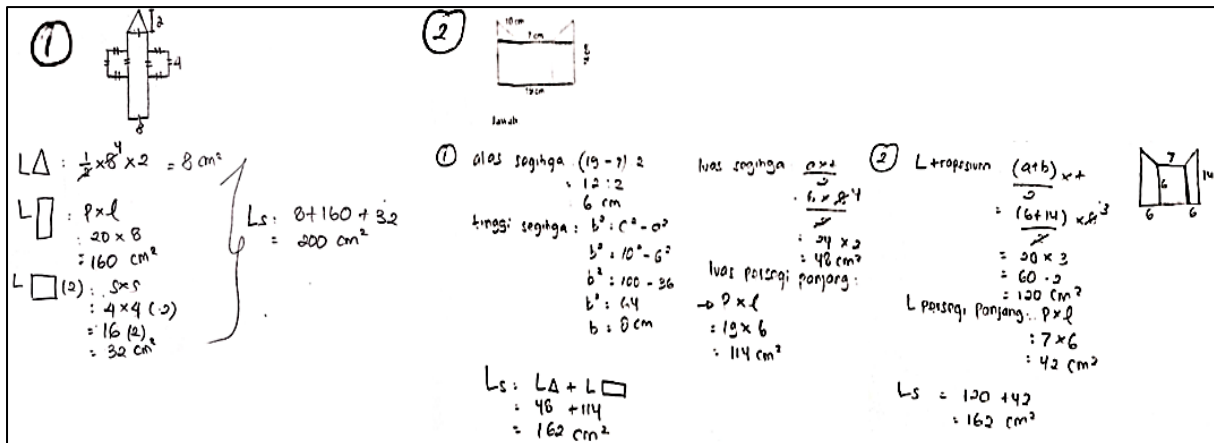 ①
2
4
8
L△ : 1/2 × 8 4 × 2 = 8 cm²
L▯ : P × l
: 20 × 8
= 160 cm²
L□ (2) : s × s
: 4 × 4 (2)
= 16 (2)
= 32 cm²
Ls : 8 + 160 + 32
= 200 cm²
②
10 cm
7 cm
19 cm
Jawab
① alas segitiga (19 - 7) 2
= 12 : 2
6 cm
tinggi segitiga : b² : c² - a²
b² : 10² - 6²
b² : 100 - 36
b² : 64
b : 8 cm
luas segitiga a × t / 2
6 × 8 4 / 2
: 24 × 2
= 48 cm²
luas persegi panjang :
→ P × l
= 19 × 6
= 114 cm²
Ls : L△ + L▭
= 48 + 114
= 162 cm²
② L trapesium (a+b) × t / 2
= (6+14) × 6 3 / 2
= 20 × 3
= 60 . 2
= 120 cm²
L persegi panjang : P × l
: 7 × 6
= 42 cm²
Ls = 120 + 42
= 162 cm²
7
6
14
6
6